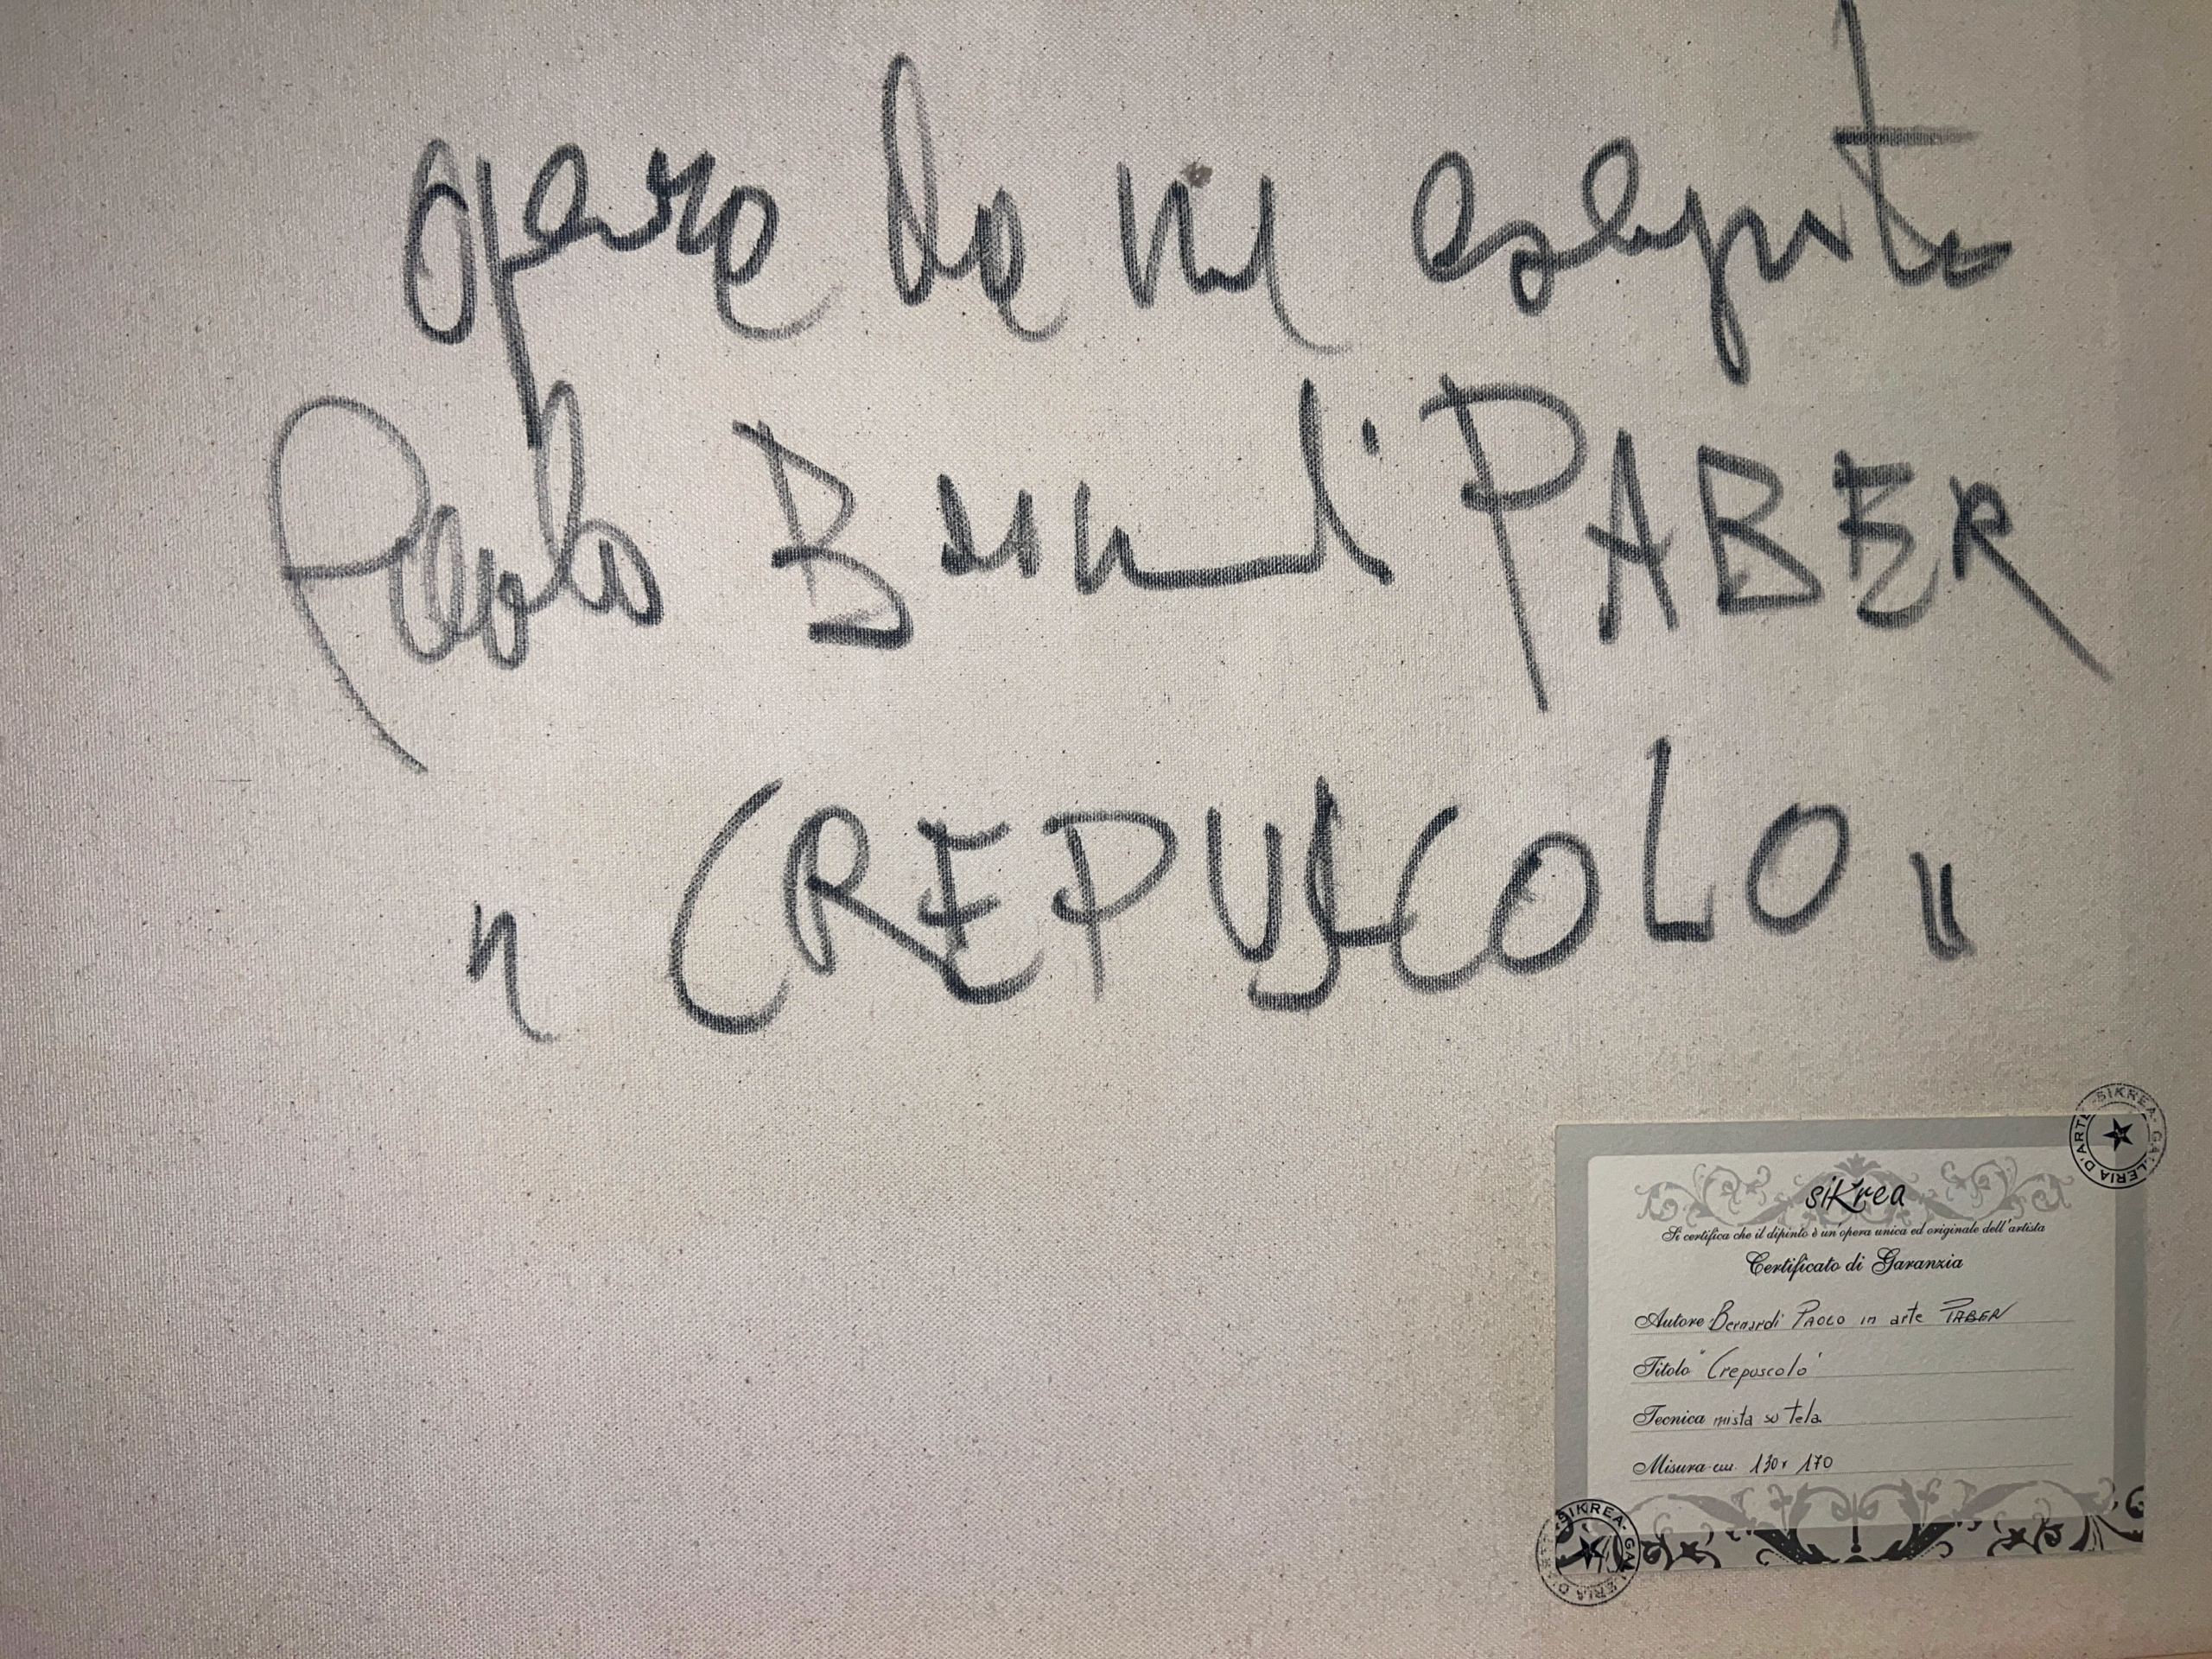 opera da me eseguita
Paolo Bernardi PABER
"CREPUSCOLO"
SIKREA - GALLERIA D'ARTE
siKrea
Si certifica che il dipinto è un'opera unica ed originale dell'artista
Certificato di Garanzia
Autore Bernardi PAOLO in arte PABER
Titolo "Crepuscolo"
Tecnica mista su tela
Misura cm. 130x170
SIKREA - GALLERIA D'ARTE